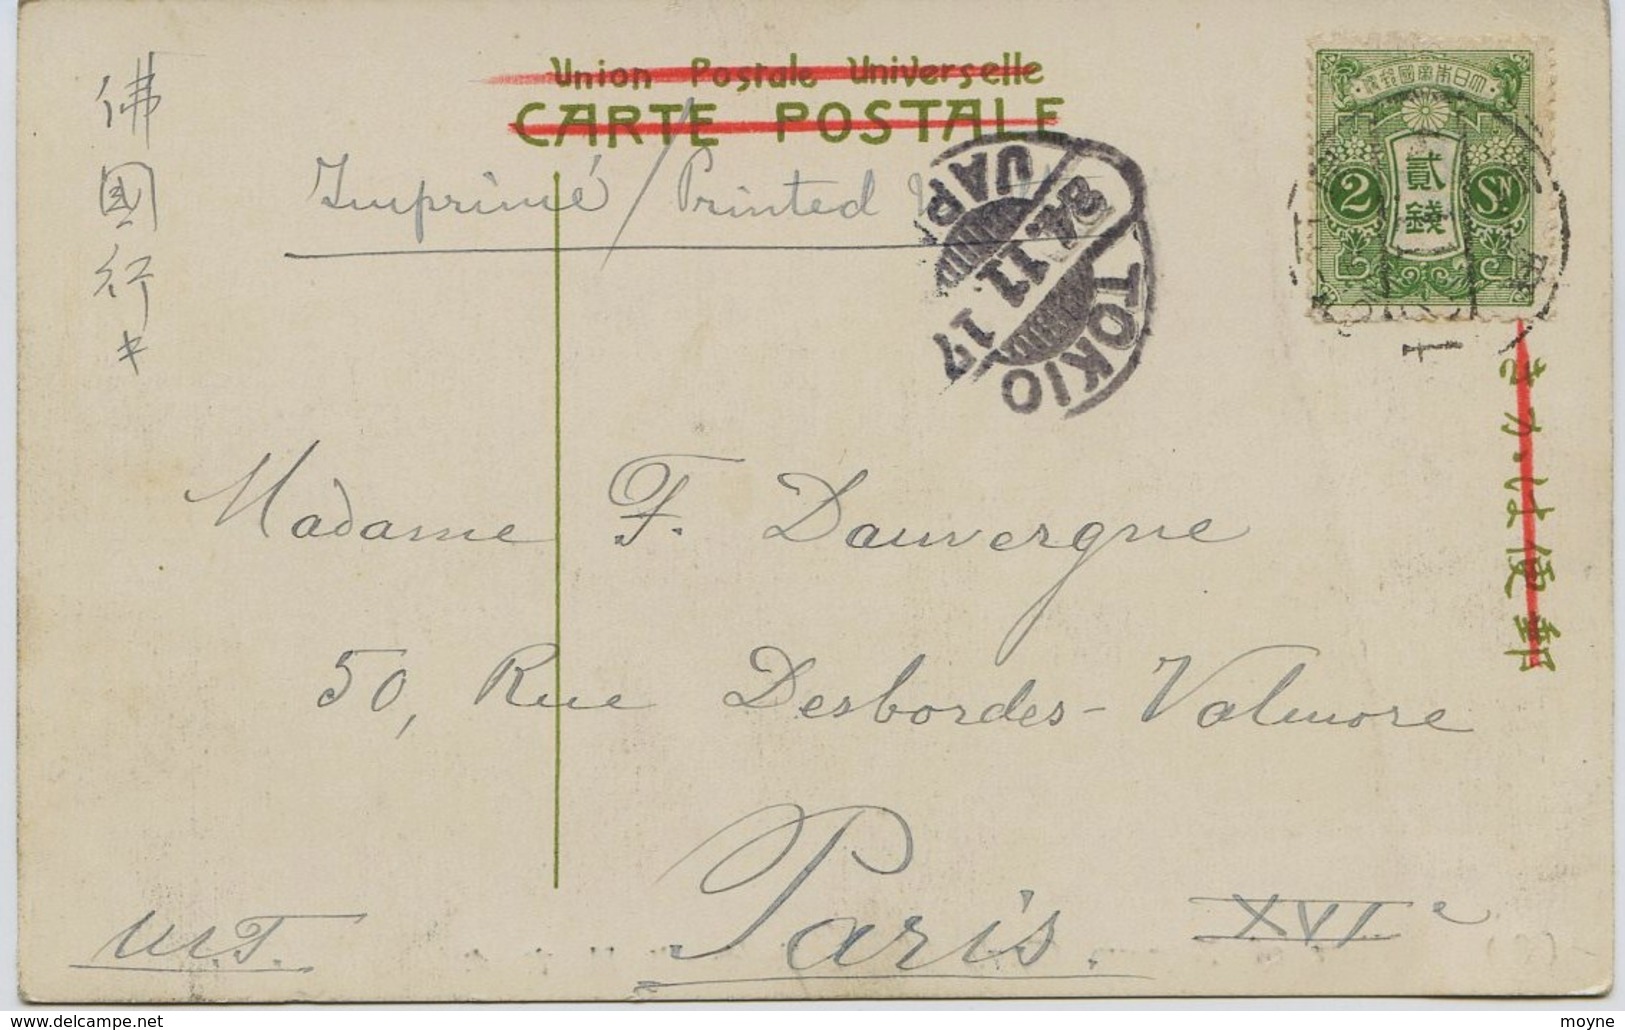 佛國行キ
Union Postale Universelle
CARTE POSTALE
Imprimé / Printed
大日本帝國郵便
貳錢
2
SN
TOKIO
17.11.24.
JAP
きかは便郵
Madame F. Dauvergne
50, Rue Desbordes-Valmore
Paris. XVI.e
www.delcampe.net
moyne